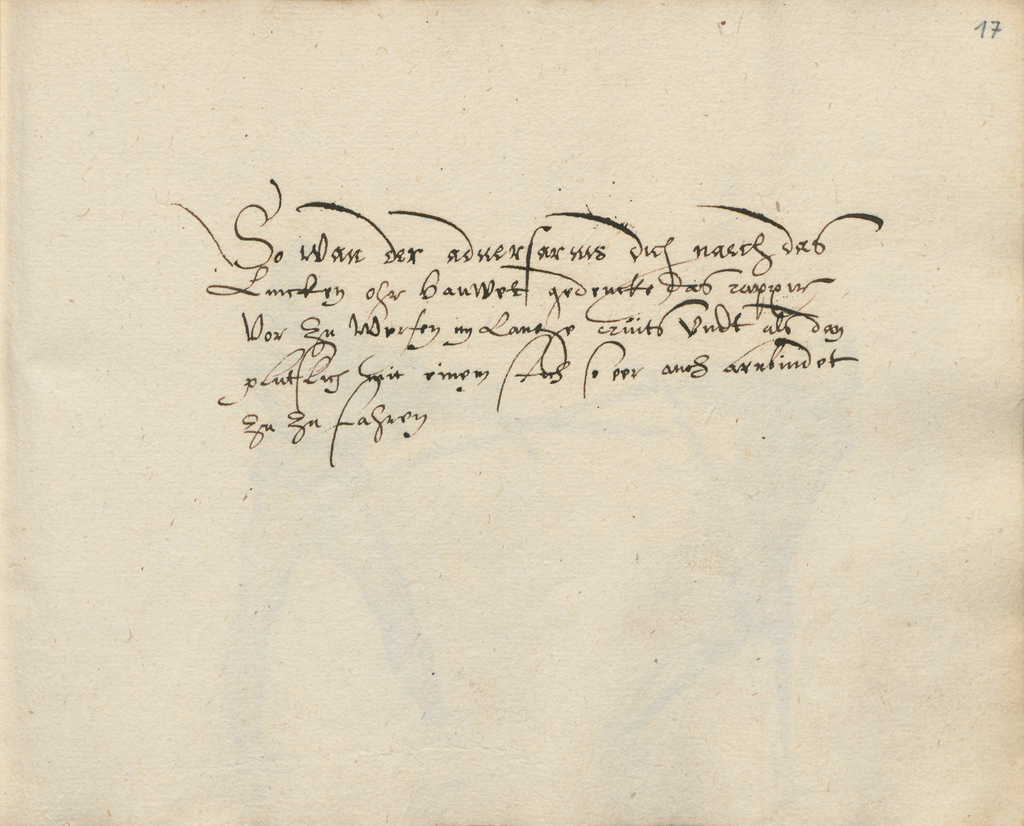 17
So wan der aduersarius dich naech das
Lincken ohr hauwet gedencke das rappir
Vor zu werfen im Lanche cruits Vndt als dan
plutzlich mit einem stich so eer auch anbindet
zu zu fahren